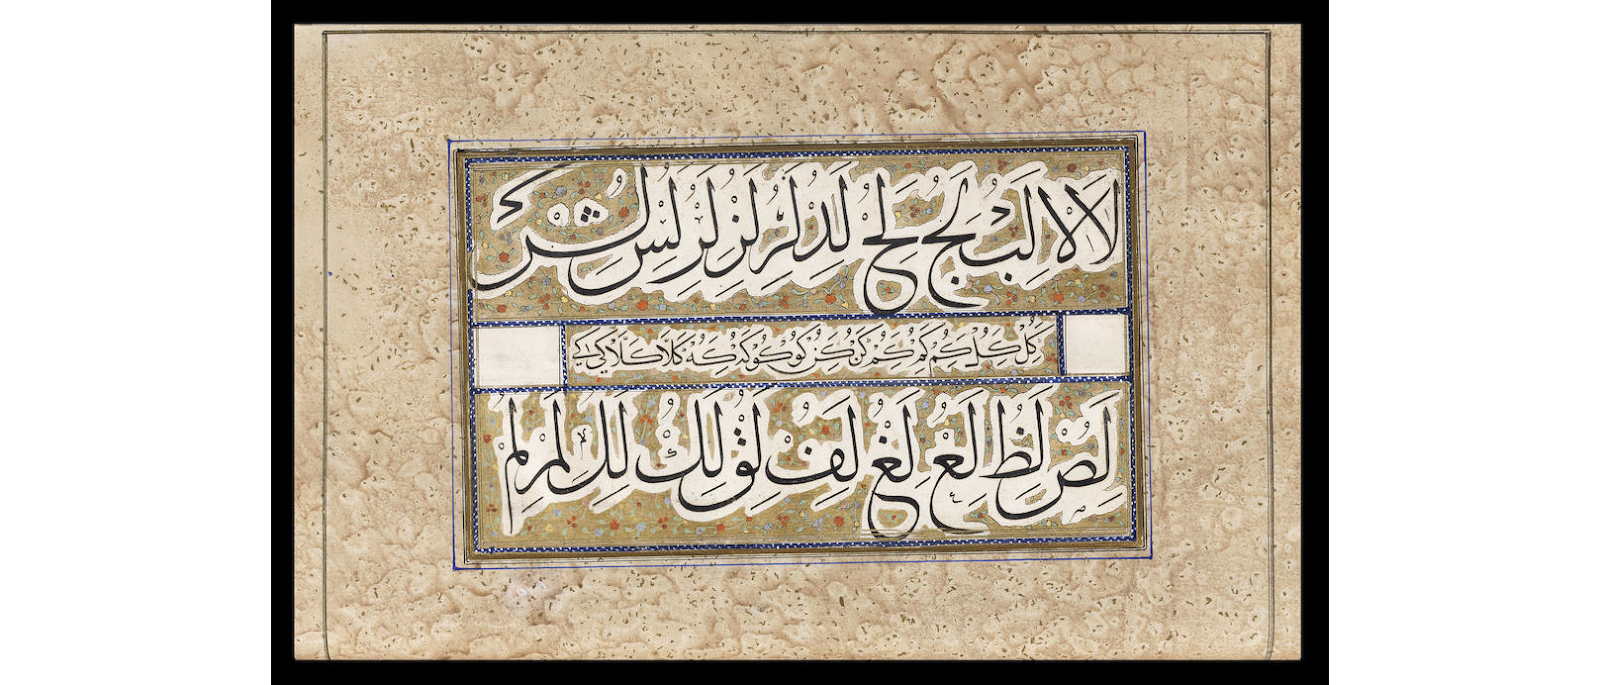 لا لا لب لج لح لد لر لز لر لس لش
كل كل كم كم كم كن كن كو كو كه كه كلا كلا كي كي
لص لظ لع لغ لف لق لك لل لم لم